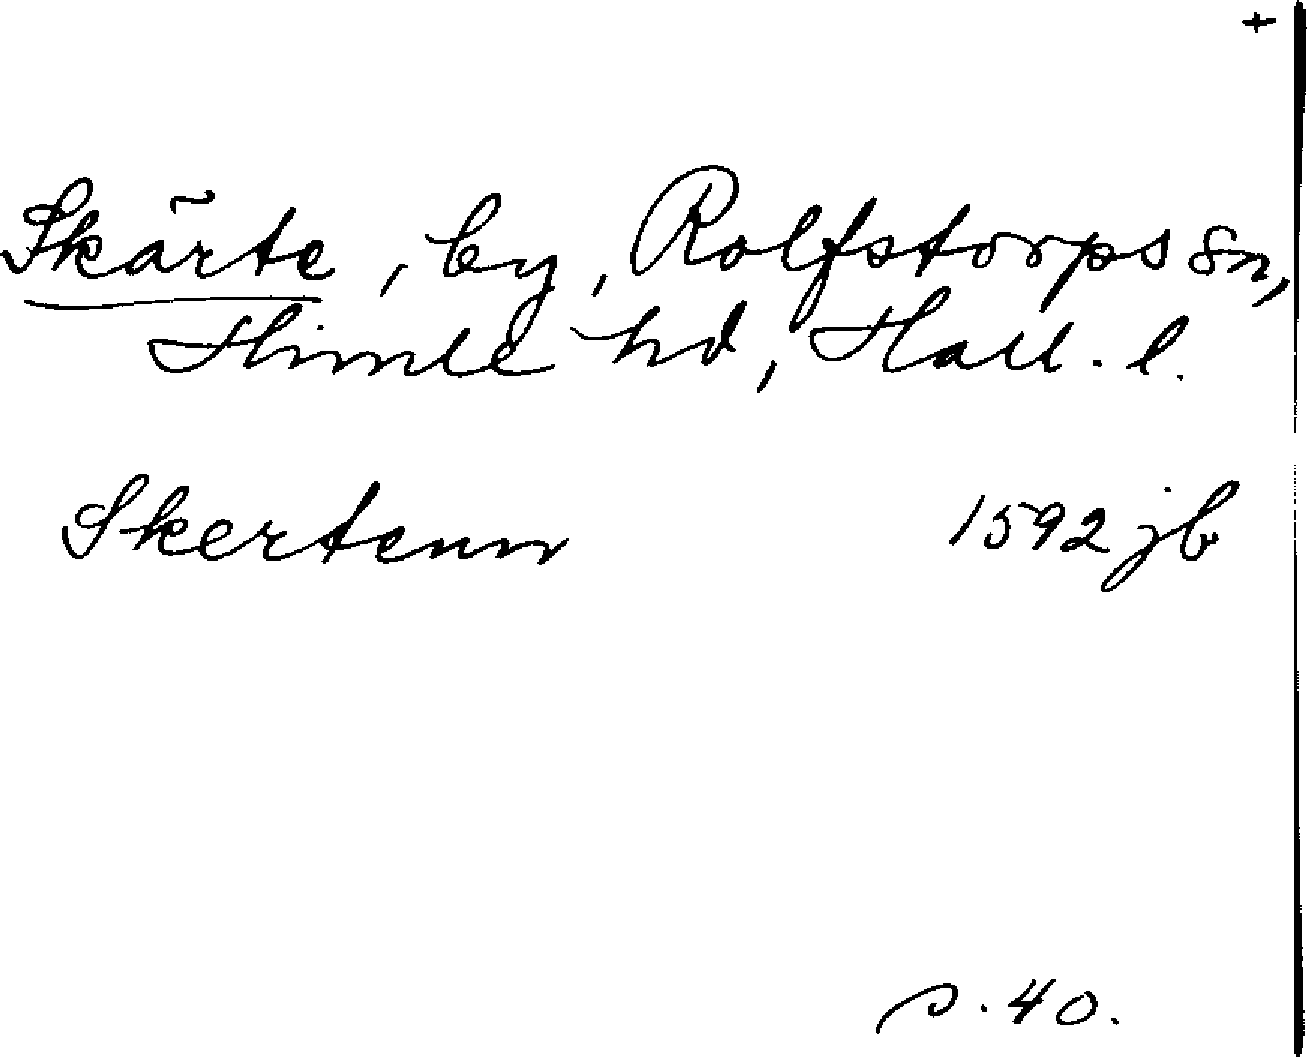 +
Skärte, by, Rolfstorps sn,
Himle hd, Hall. l.
Skertenn 1592 jb
s. 40.